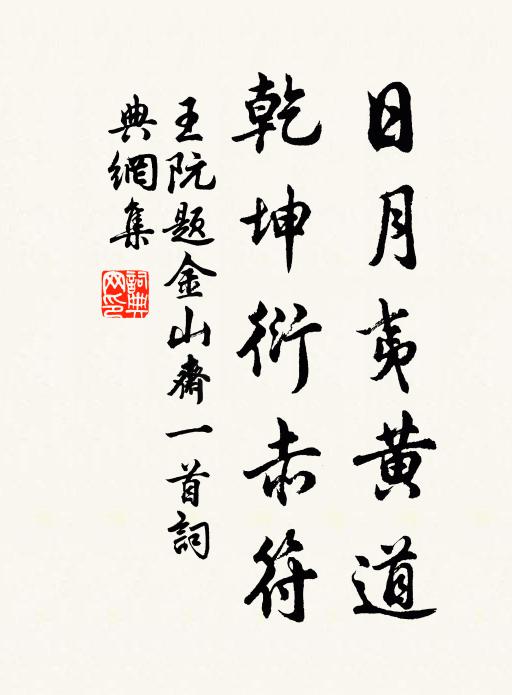 日月夷黄道
乾坤衍赤符
王阮题金山齋一首詞
典網集
詞典网印